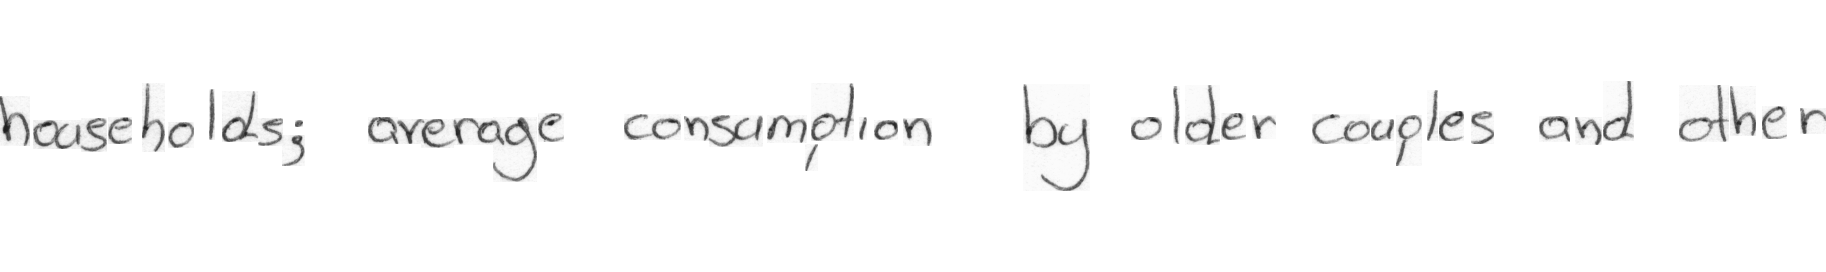 households; average consumption by older couples and other